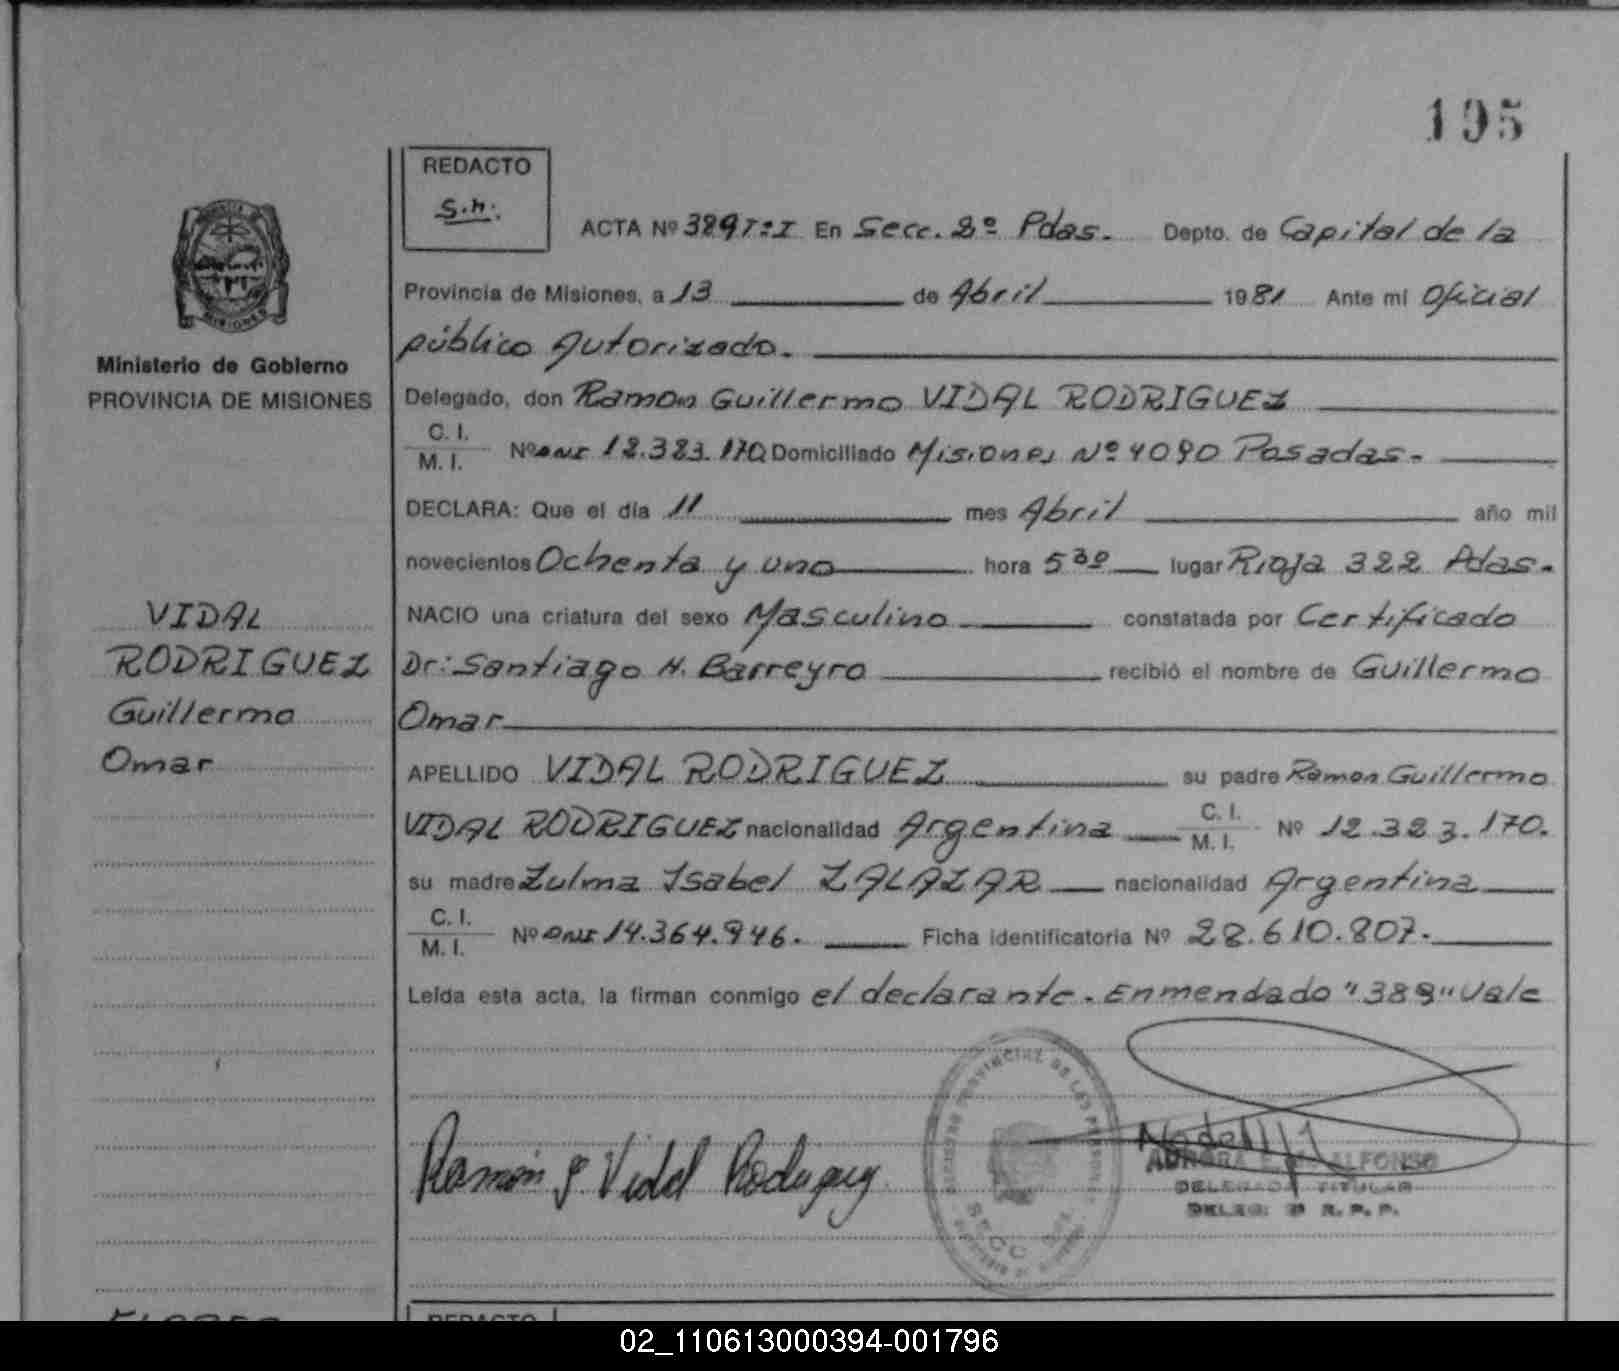 195
REDACTO
S.h.
ACTA Nº 389 Tº I En Secc. 2º Pdas. Depto. de Capital de la
Provincia de Misiones, a 13 de Abril 1981 Ante mi Oficial
público Autorizado.
Ministerio de Gobierno
PROVINCIA DE MISIONES
Delegado, don Ramon Guillermo VIDAL RODRIGUEZ
C. I.
M. I. Nº DNI 12.323.170 Domiciliado Misiones Nº 4090 Posadas.
DECLARA: Que el día 11 mes Abril año mil
novecientos Ochenta y uno hora 5 30 lugar Rioja 322 Pdas.
NACIO una criatura del sexo Masculino constatada por Certificado
Dr: Santiago H. Barreyro recibió el nombre de Guillermo
Omar
VIDAL
RODRIGUEZ
Guillermo
Omar
APELLIDO VIDAL RODRIGUEZ su padre Ramon Guillermo
VIDAL RODRIGUEZ nacionalidad Argentina C. I. M. I. Nº 12.323.170.
su madre Zulma Isabel ZALAZAR nacionalidad Argentina
C. I.
M. I. Nº DNI 14.364.946. Ficha identificatoria Nº 28.610.807.
Leída esta acta, la firman conmigo el declarante. Enmendado "389" Vale
Ramón G Vidal Rodriguez
REGISTRO PROVINCIAL DE LAS PERSONAS
ALFONSO
DELEGADA TITULAR
DELEG. 2ª R. P. P.
REDACTO
02_110613000394-001796